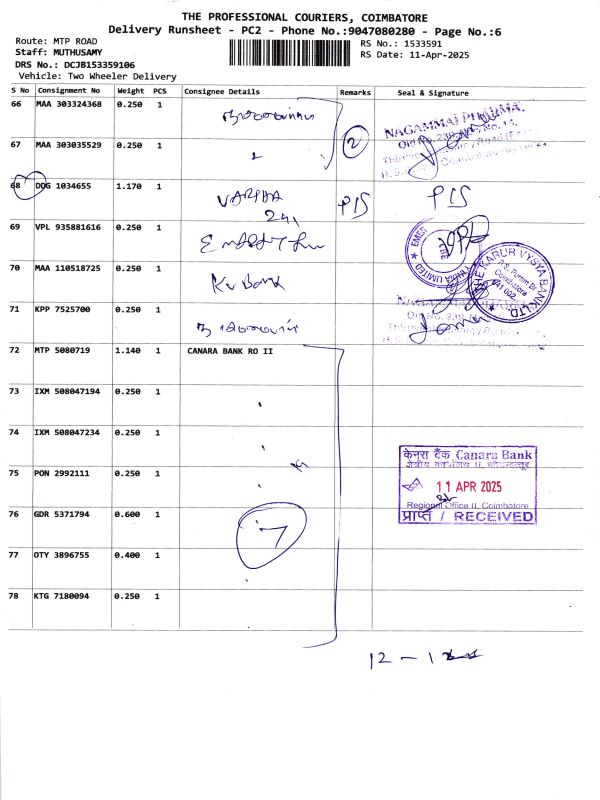 THE PROFESSIONAL COURIERS, COIMBATORE
Delivery Runsheet - PC2 - Phone No.:9047080280 - Page No.:6
Route: MTP ROAD
Staff: MUTHUSAMY
DRS No.: DCJB153359106
Vehicle: Two Wheeler Delivery
RS No.: 1533591
RS Date: 11-Apr-2025
S No Consignment No Weight PCS Consignee Details Remarks Seal & Signature
66 MAA 303324368 0.250 1
NAGAMMAI PHARMA,
67 MAA 303035529 0.250 1 2
68 DDG 1034655 1.170 1
69 VPL 935881616 0.250 1
EMES
INDIA LIMITED
70 MAA 110518725 0.250 1 KV Bank
THE KARUR VYSYA BANK LTD.
Coimbatore
71 KPP 7525700 0.250 1
72 MTP 5080719 1.140 1 CANARA BANK RO II
73 IXM 508047194 0.250 1
74 IXM 508047234 0.250 1
केनरा बैंक Canara Bank
75 PON 2992111 0.250 1
11 APR 2025
Regional Office II, Coimbatore
प्राप्त / RECEIVED
76 GDR 5371794 0.600 1 7
77 OTY 3896755 0.400 1
78 KTG 7180094 0.250 1